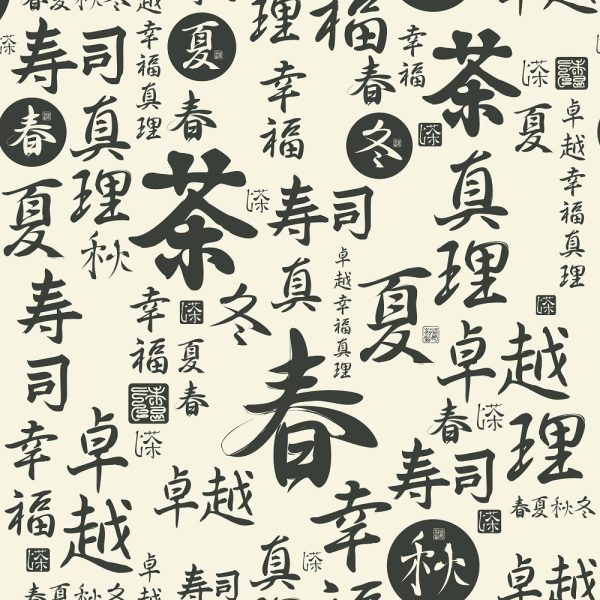 理
福
春夏秋冬
寿司
幸福真理
夏
幸福
春
茶
春
真理
春
幸福
冬
夏
卓越幸福真理
夏
秋
茶
寿司
真
卓越幸福真理
真理
寿司
幸福
冬
夏
夏春
春
卓越
理
幸福
卓越
春
寿司
春夏秋冬
卓越
幸福
秋
真
寿司
卓越
春夏秋冬
卓越